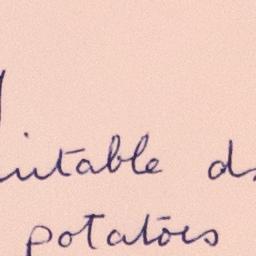 uitable ds
potatoes